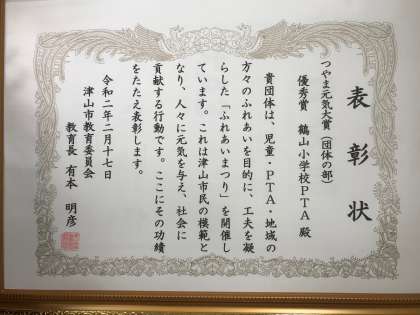 表彰状
つやま元気大賞(団体の部)
優秀賞 鶴山小学校PTA殿
貴団体は、児童・PTA・地域の
方々のふれあいを目的に、工夫を凝
らした「ふれあいまつり」を開催し
ています。これは津山市民の模範と
なり、人々に元気を与え、社会に
貢献する行動です。ここにその功績
をたたえ表彰します。
令和二年二月十七日
津山市教育委員会
教育長 有本 明彦